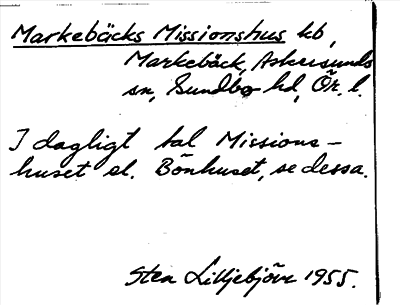 Markebäcks Missionshus kb,
Markebäck, Askersunds
sn, Sundbo hd, Ör. l.
I dagligt tal Missions-
huset el. Bönhuset, se dessa.
Sten Lilliebjörn 1955.